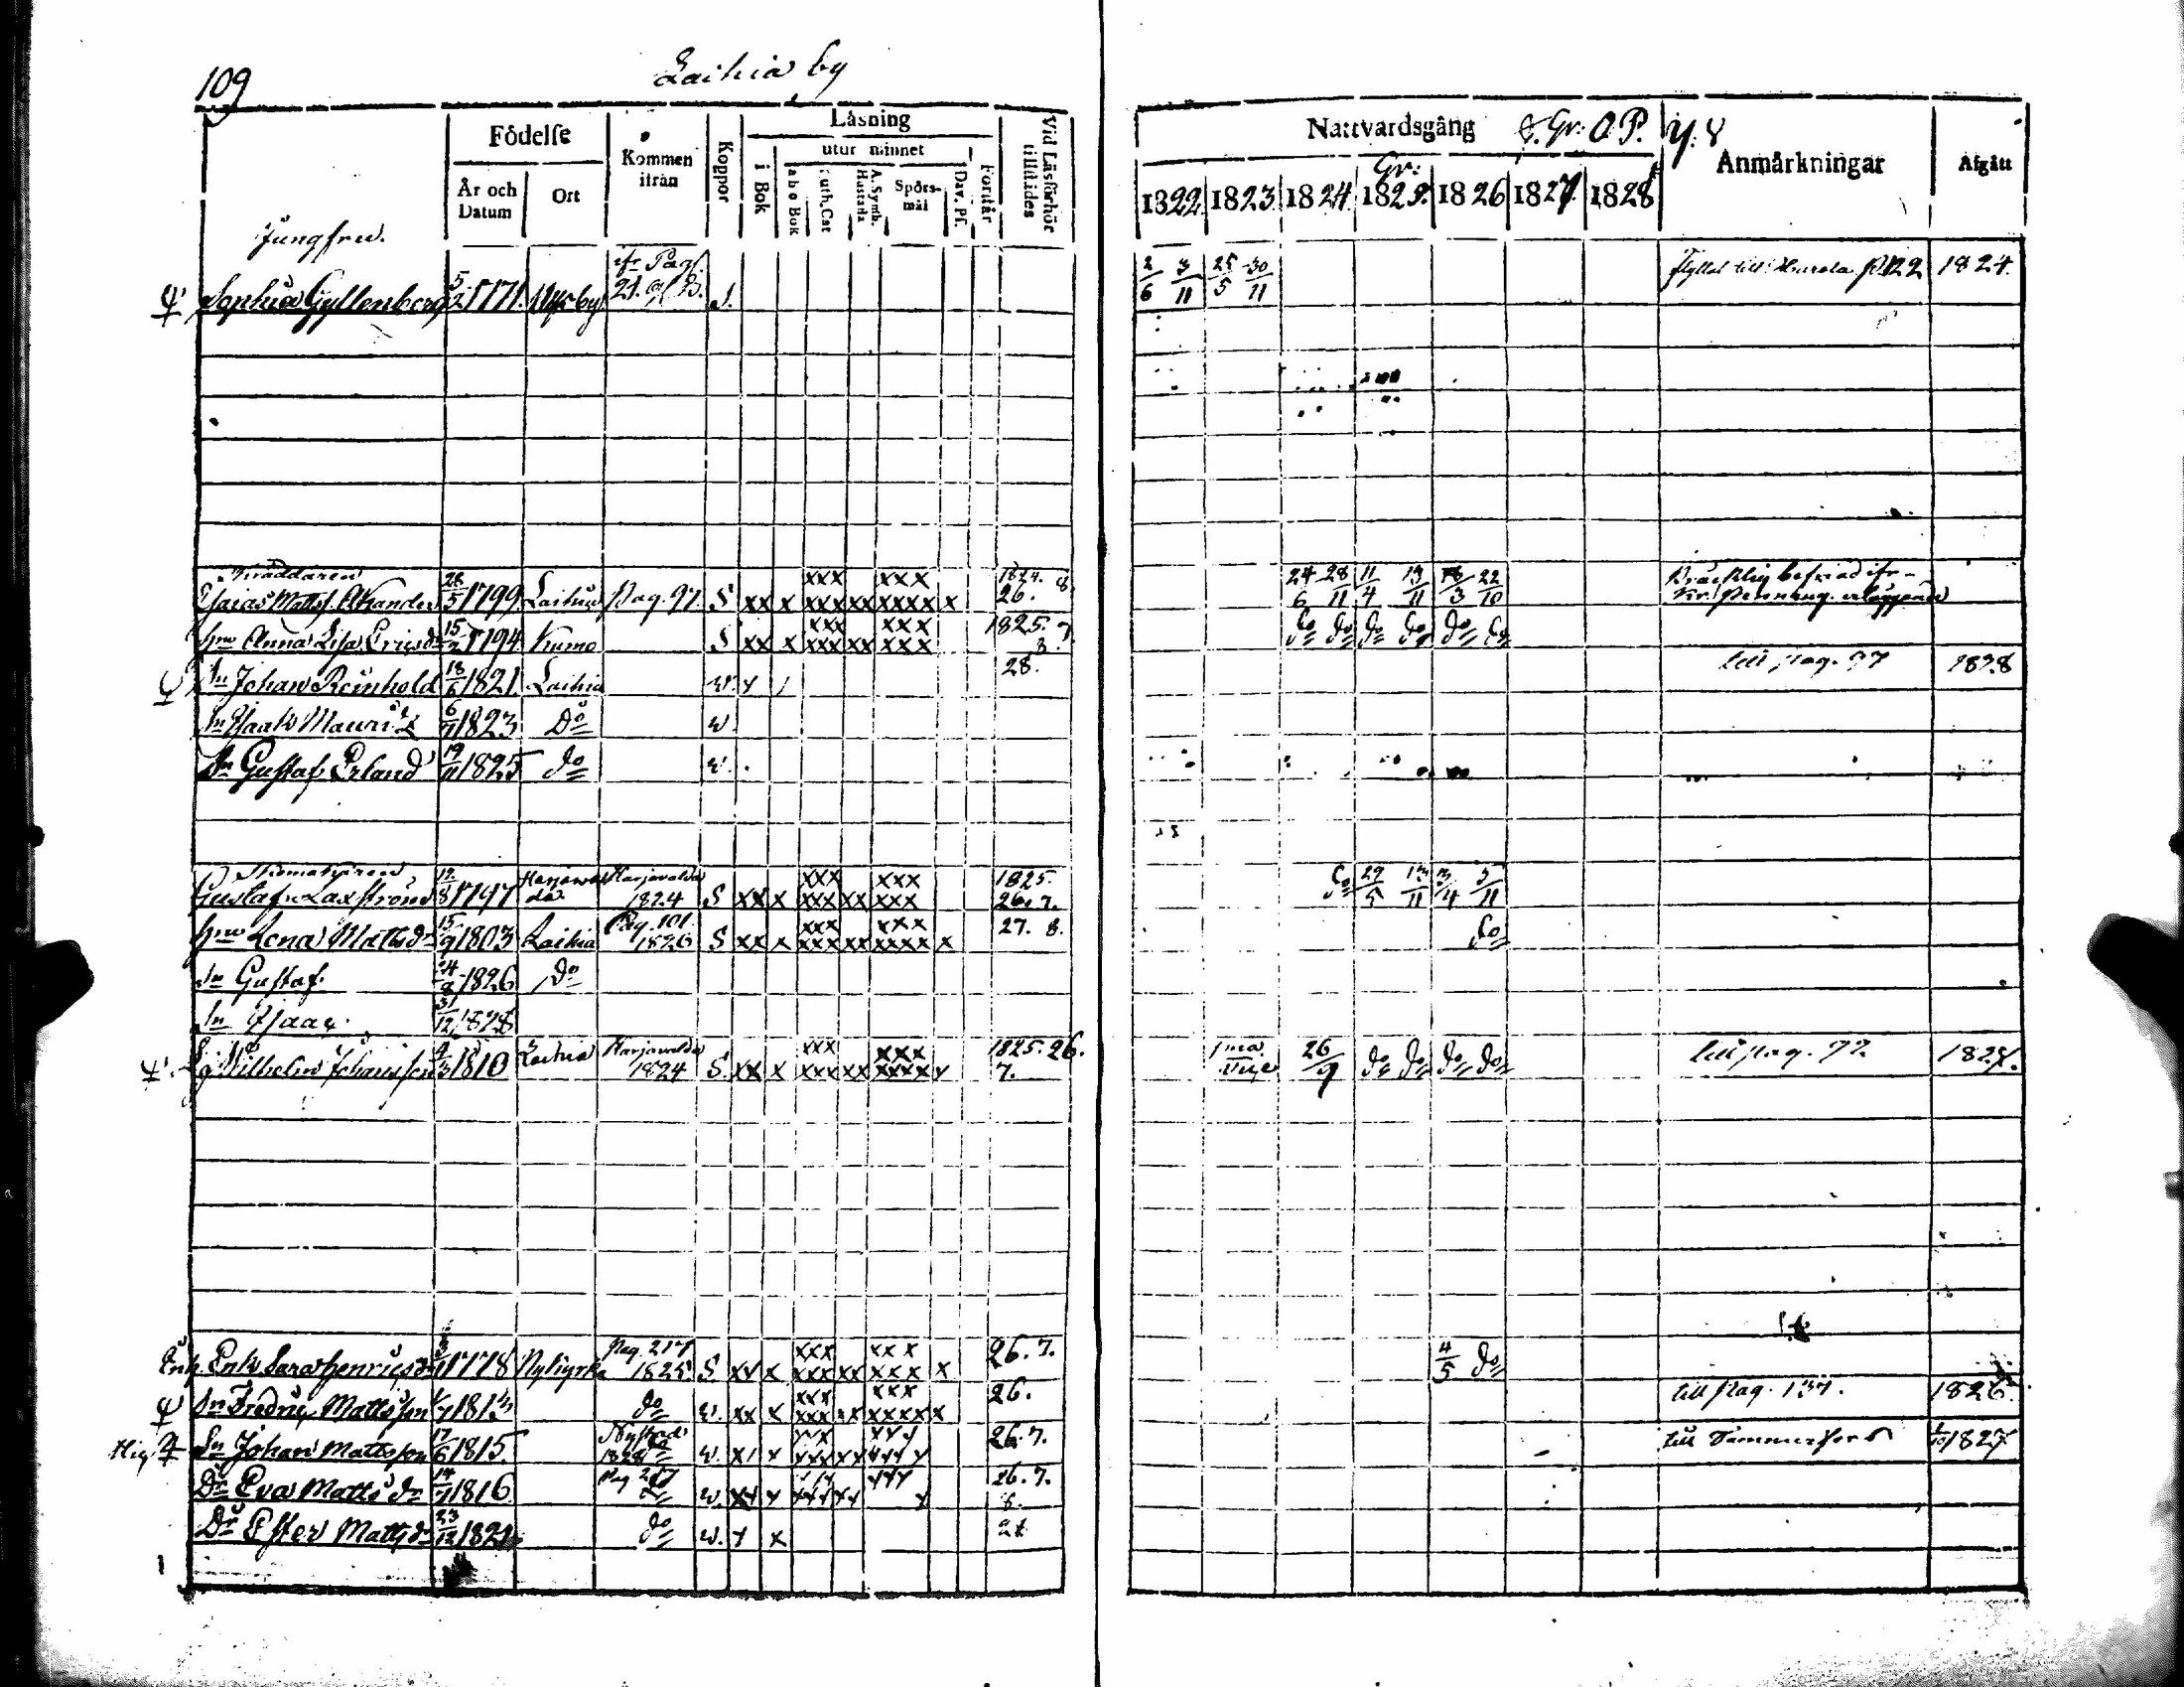 109
Laihia by
Födelse
År och Datum
Ort
Kommen ifrån
Koppor
Läsning
i Bok
utur minnet
abc Bok
Luth. Cat
A. Symb. Hustafla
Spörsmål
Dav. Ps.
Förstår
Vid Läsförhör tillstädes
Nattvardsgång Gr. O. P.
Gr:
1822 1823 1824 1825 1826 1827 1828
Y: 8
Anmärkningar
Afgått
Jungfru.
Sophia Gyllenberg 5/2 1771 21. S. 2/6 3/11 25/5 30/11 p. 122 1824.
Skräddaren
Esaias Matts. 28/5 1799 Laihia Pag. 97. S xx x xxx xxx xx xxx xxxx x 1824. 26. 8. 24/6 28/11 11/4 13/11 3 22/10
Hru Anna Lisa Ericsdr 15/2 1794 Kumo S xx x xxx xxx xx xxx xxx 1825. 7. 8. do do do do do do
Sn Johan Reinhold 18/6 1821 Laihia w. 28. till pag. 97 1828
Sn Isaak Mauritz 6/7 1823 Do w.
Sn Gustaf Erland 19/11 1825 do w.
Gustaf Laxström 8 1797 Harjavalda Harjavalda 1824 S xx x xxx xxx xx xxx xxx 1825. 26. 7. do 29/5 13/11 3/4 5/11
Hru Lena Mattsdr 15/9 1803 Laihia Pag. 101. 1826 S xx x xxx xxx xx xxx xxxx x 27. 8. do
Sn Gustaf. 24/8 1826 Do
Sn Isaac. 31/12 1828
Wilhelm Johansson 3 1810 Laihia Harjavalda 1824 S. xx x xxx xxx xx xxx xxxx x 1825. 26. 7. 26/9 do do do do till pag. 92. 1827.
Enk. Sara Henricsdr 1778 Nykyrka Pag. 217 1825. S xx x xxx xxx xx xxx xxx x 26. 7. 4/5 do
Sn Fredric Mattsson 1813 do w. xx x xxx xxx xx xxx xxxx x 26. till pag. 137. 1826
Sn Johan Mattsson 17/6 1815. Nystad 1828 w. 26. 7. till Tammerfors 1827
Dr Eva Mattsdr 14/7 1816 Pag 217 w. 26. 7. 8.
Dr Ester Mattsdr 23/12 1821 do w. x x